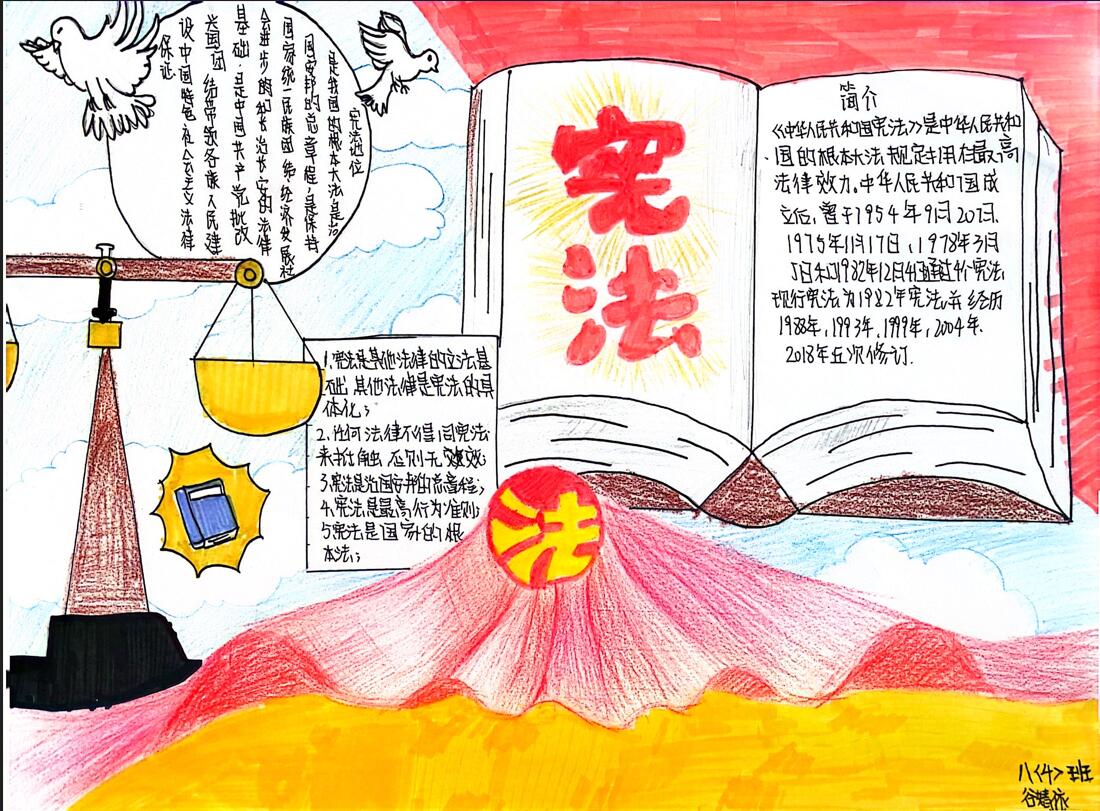 宪法地位
是我国的根本大法,是治
国安邦的总章程,是保持
国家统一民族团结经济发展社
会进步的和长治长安的法律
基础.是中国共产党执政
兴国团结带领各族人民建
设中国特色社会主义法律
保证.
宪
法
简介
《中华人民共和国宪法》是中华人民共和
国的根本大法,规定拥有最高
法律效力,中华人民共和国成
立后,曾于1954年9月20日、
1975年11月17日,1978年3月
5日和1982年12月4日通过个宪法,
现行宪法为1982年宪法并经历
1988年,1993年,1999年,2004年、
2018年五次修订.
1.宪法是其他法律的立法基
础,其他法律是宪法的具
体化;
2.任何法律不得同宪法
来抵触,否则无效;
3.宪法是治国安邦的总章程;
4.宪法是最高行为准则;
5宪法是国家的根
本法;
法
八<4>班
谷